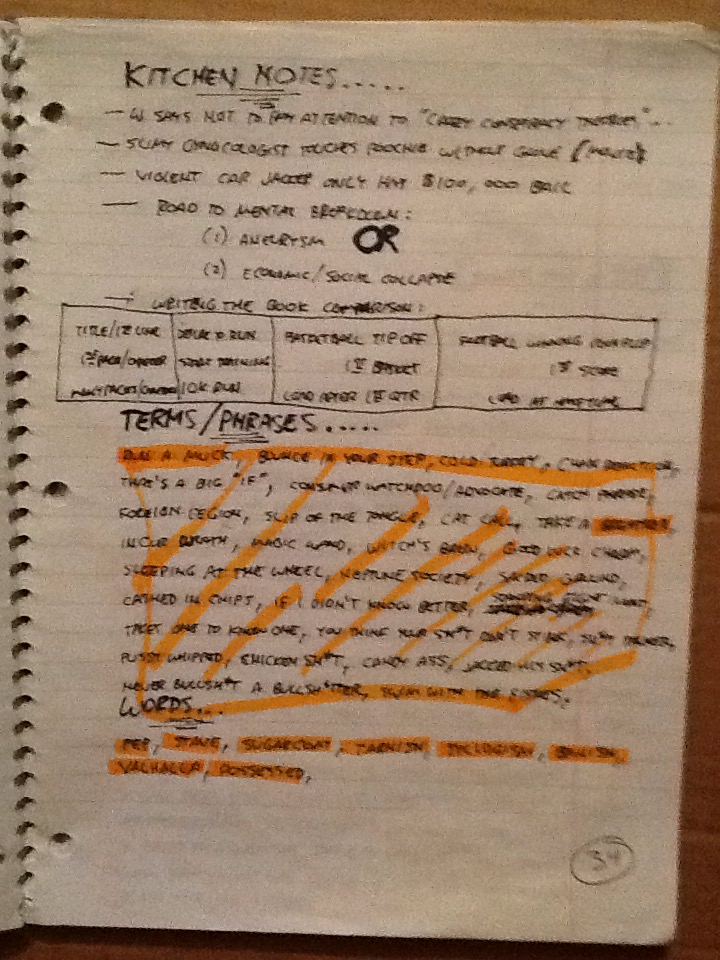 KITCHEN NOTES.....
— W SAYS NOT TO PAY ATTENTION TO "CRAZY CONSPIRACY THEORIES"...
— SLIMY TOUCHES POOCHIE WITHOUT GLOVE
— VIOLENT CAR JACKER ONLY HAS $100,000 BAIL
— ROAD TO MENTAL BREAKDOWN:
(1) ANEURYSM OR
(2) ECONOMIC/SOCIAL COLLAPSE
— WRITING THE BOOK COMPARISON:
TITLE/1ST LINE TO RUN BASKETBALL TIP OFF FOOTBALL WINNING COIN FLIP
1ST PAGE/ START TRAINING 1ST BASKET 1ST SCORE
10K RUN LEAD AFTER 1ST QTR LEAD AT HALFTIME
TERMS/PHRASES.....
RUN A MUCK, BOUNCE IN YOUR STEP, COLD TURKEY, CHAIN REACTION,
THAT'S A BIG "IF", CONSUMER WATCHDOG/ADVOCATE, CATCH PHRASE,
FOREIGN LEGION, SLIP OF THE TONGUE, CAT CALL, TAKE A
INCUR WRATH, MAGIC WAND, WITCH'S BREW, GOOD LUCK CHARM,
SLEEPING AT THE WHEEL, NEPTUNE SOCIETY, SACRED GROUND,
CASHED IN CHIPS, IF I DIDN'T KNOW BETTER,
TAKES ONE TO KNOW ONE, YOU THINK YOUR SH*T DON'T STINK,
PUSSY WHIPPED, CHICKEN SH*T, CANDY ASS, JACKED MY SH*T,
NEVER BULLSH*T A BULLSH*TTER, SWIM WITH THE FISHES.
WORDS...
PEP, STAVE, SUGARCOAT, TARNISH, SYLLOGISM, BANISH,
VALHALLA, POSSESSED,
34